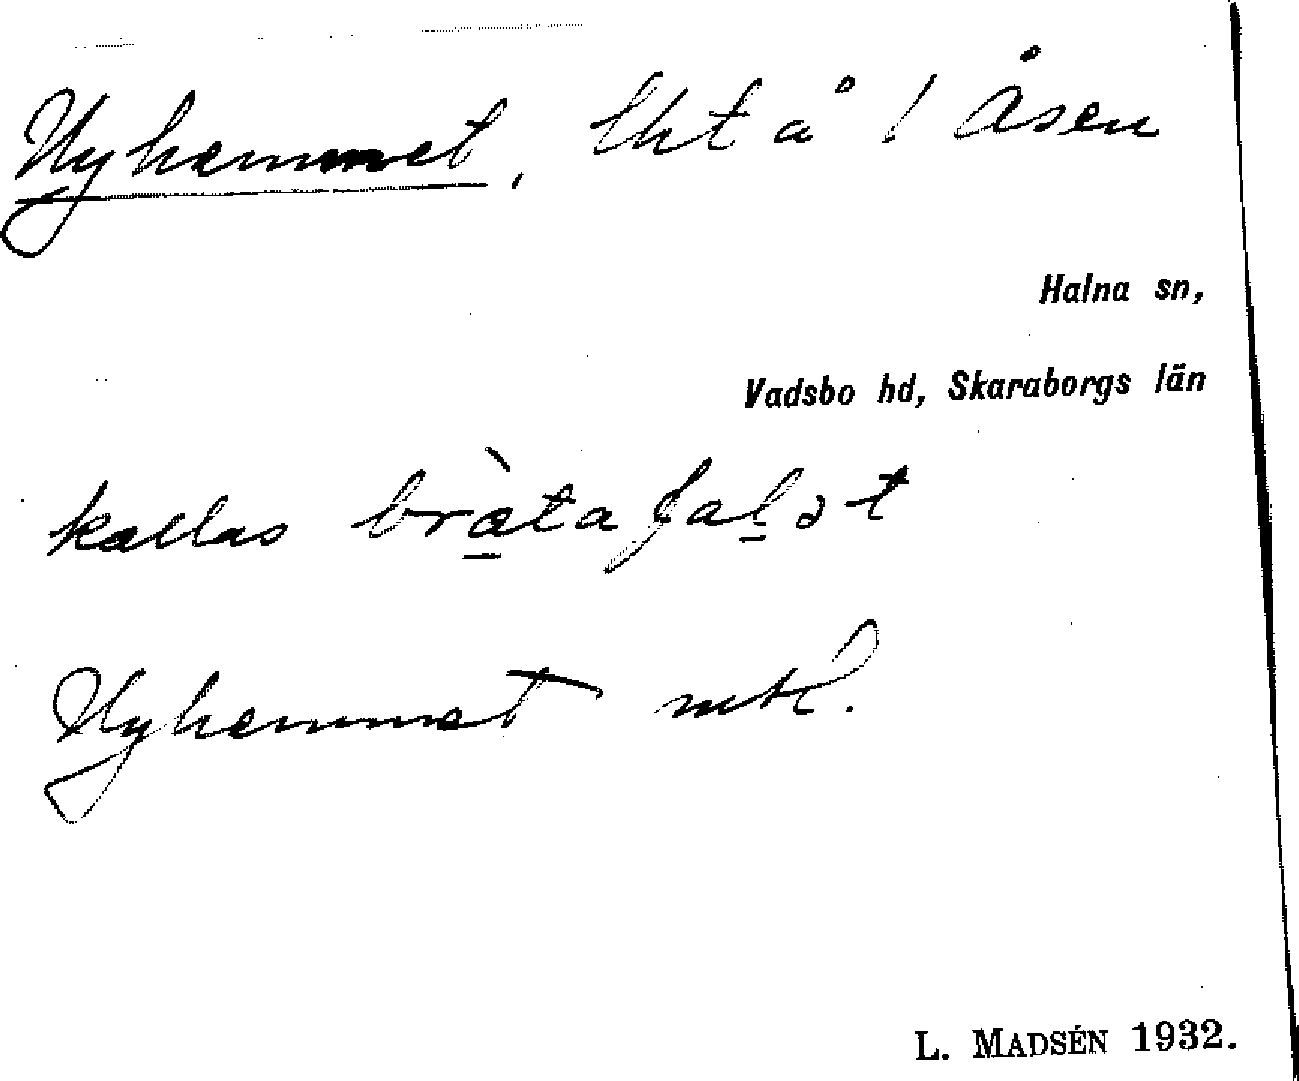 Nyhemmet, lht å 1 Åsen
Halna sn,
Vadsbo hd, Skaraborgs län
kallas
Nyhemmet mtl.
L. MADSÉN 1932.